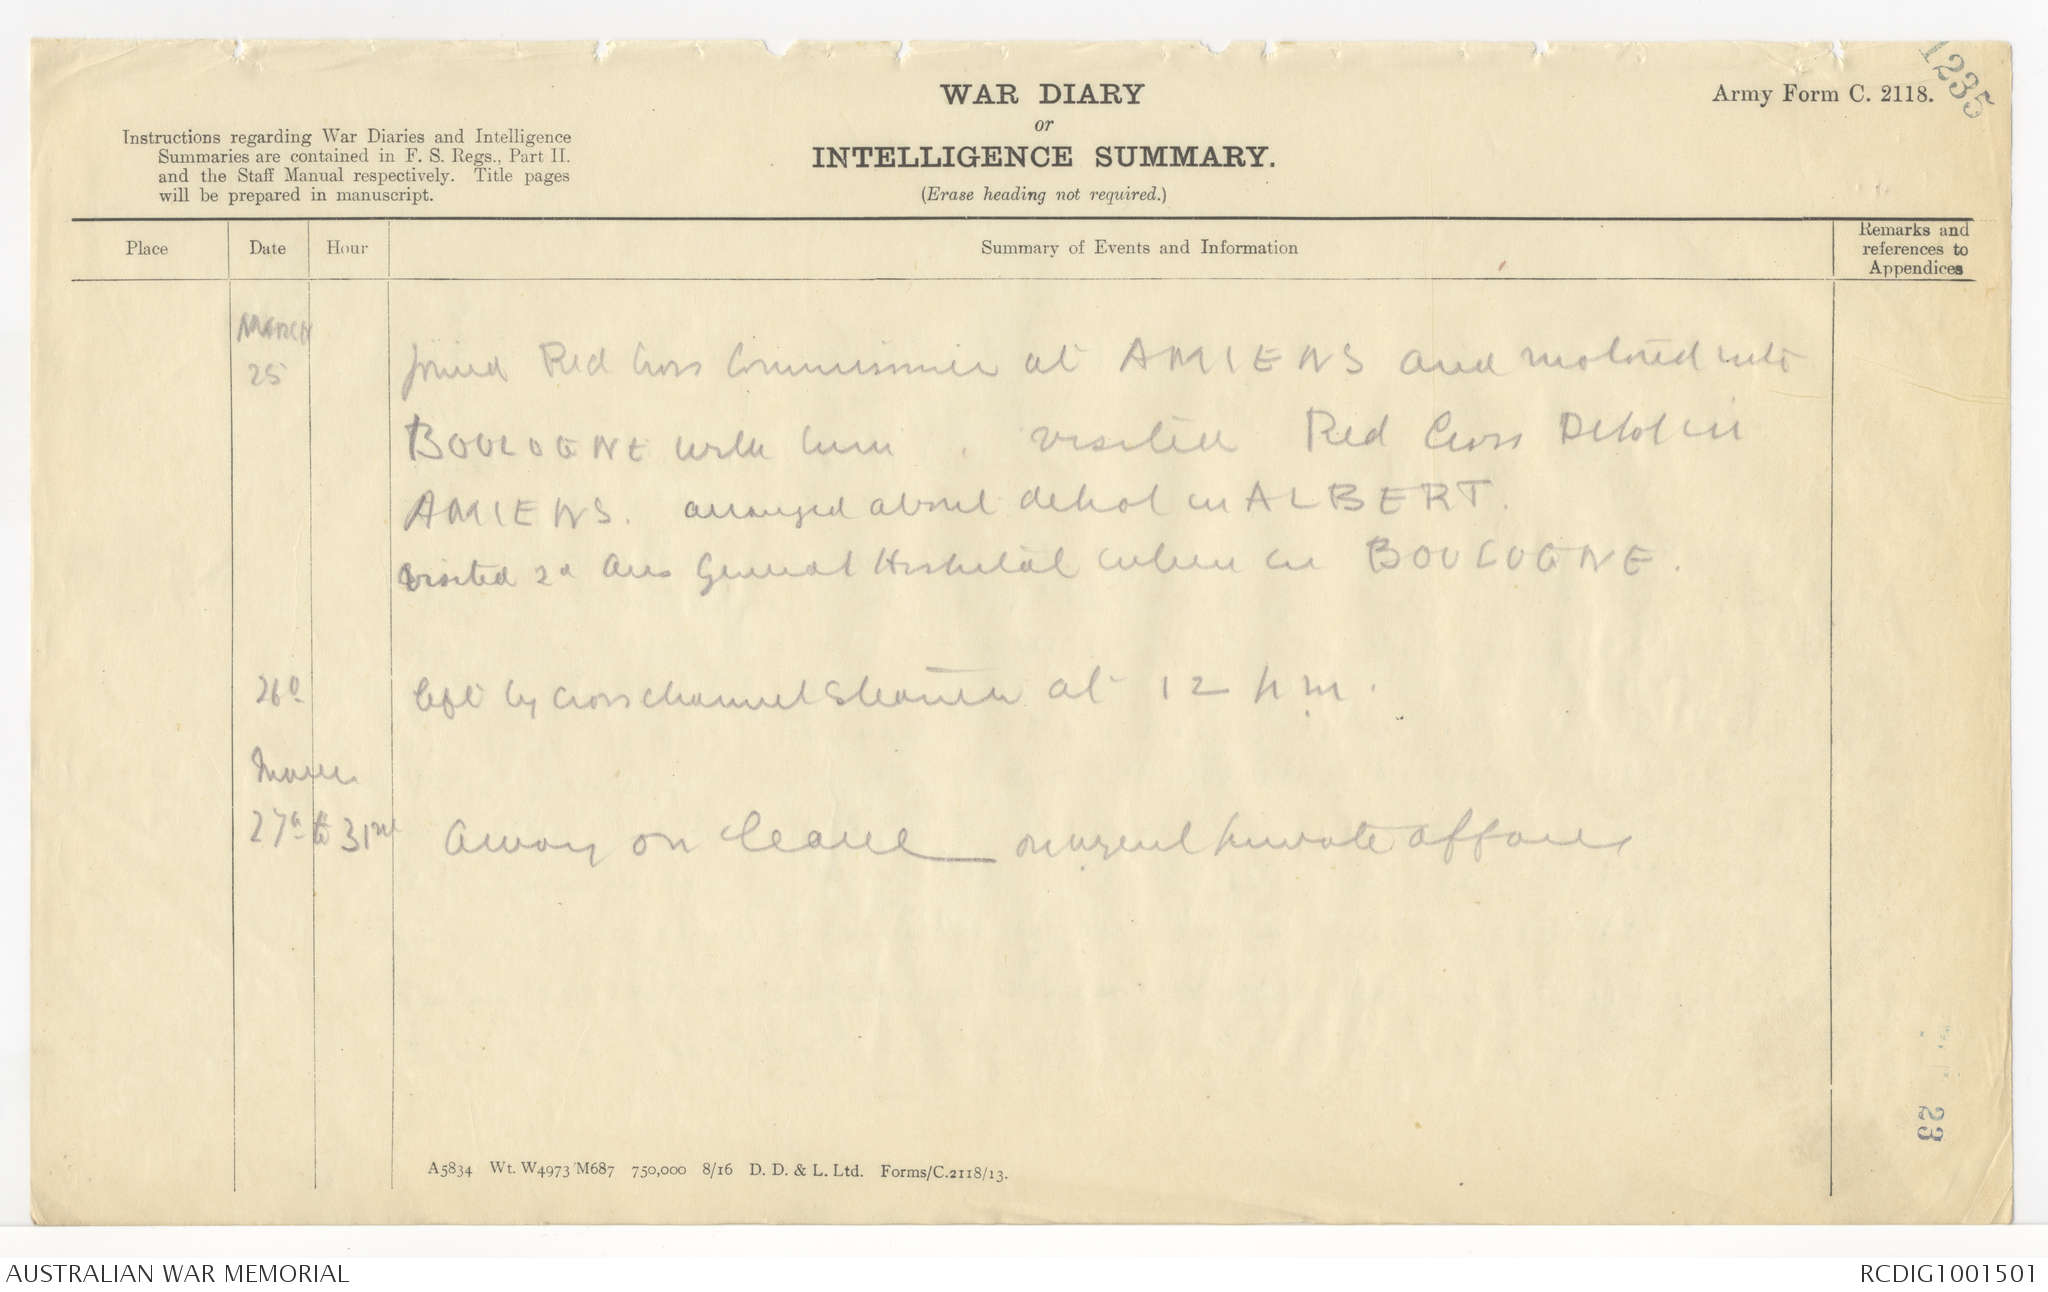 1235
WAR DIARY
or
INTELLIGENCE SUMMARY.
(Erase heading not required.)
Army Form C. 2118.
Instructions regarding War Diaries and Intelligence
Summaries are contained in F. S. Regs., Part II.
and the Staff Manual respectively. Title pages
will be prepared in manuscript.
Place Date Hour Summary of Events and Information Remarks and
references to
Appendices
MARCH
25 joined Red Cross Commissioner at AMIENS and motored into
BOULOGNE with him. visited Red Cross Depot in
AMIENS. arranged about depot in ALBERT.
visited 2d Aus General Hospital when in BOULOGNE.
26 left by cross channel steamer at 12 pm.
27th to 31st away on leave on urgent private affairs
23
A5834 Wt. W4973 M687 750,000 8/16 D. D. & L. Ltd. Forms/C.2118/13.
AUSTRALIAN WAR MEMORIAL
RCDIG1001501